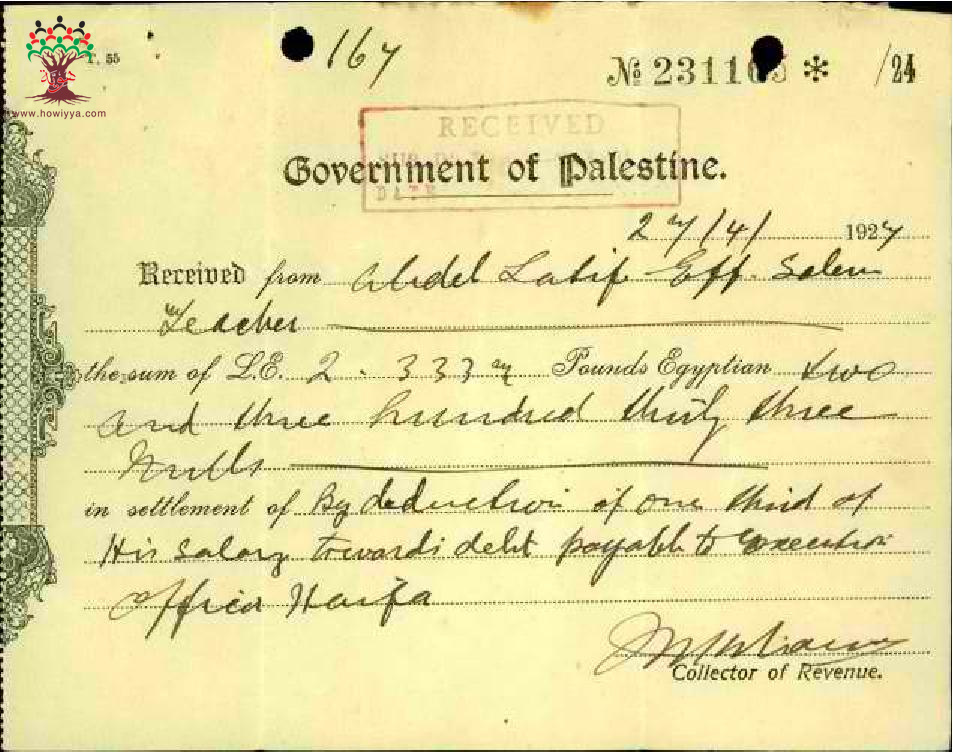 T. 55
167
№ 231165 * /24
www.howiyya.com
RECEIVED
DATE
Government of Palestine.
27/4/ 1927
Received from Abdel Latif Eff. Salem
Teacher
the sum of L.E. 2.333 m Pounds Egyptian two
and three hundred thirty three
Mills
in settlement of By deduction of one third of
His salary towards debt payable to Execution
Officer Haifa
Collector of Revenue.